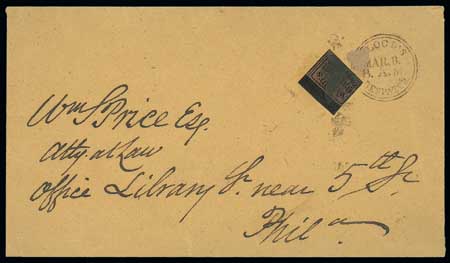 BLOOD'S
MAR. 8.
8. A.M
DESPATCH
Wm S Price Esq.
Atty. at Law
Office Library St. near 5th St.
Phila